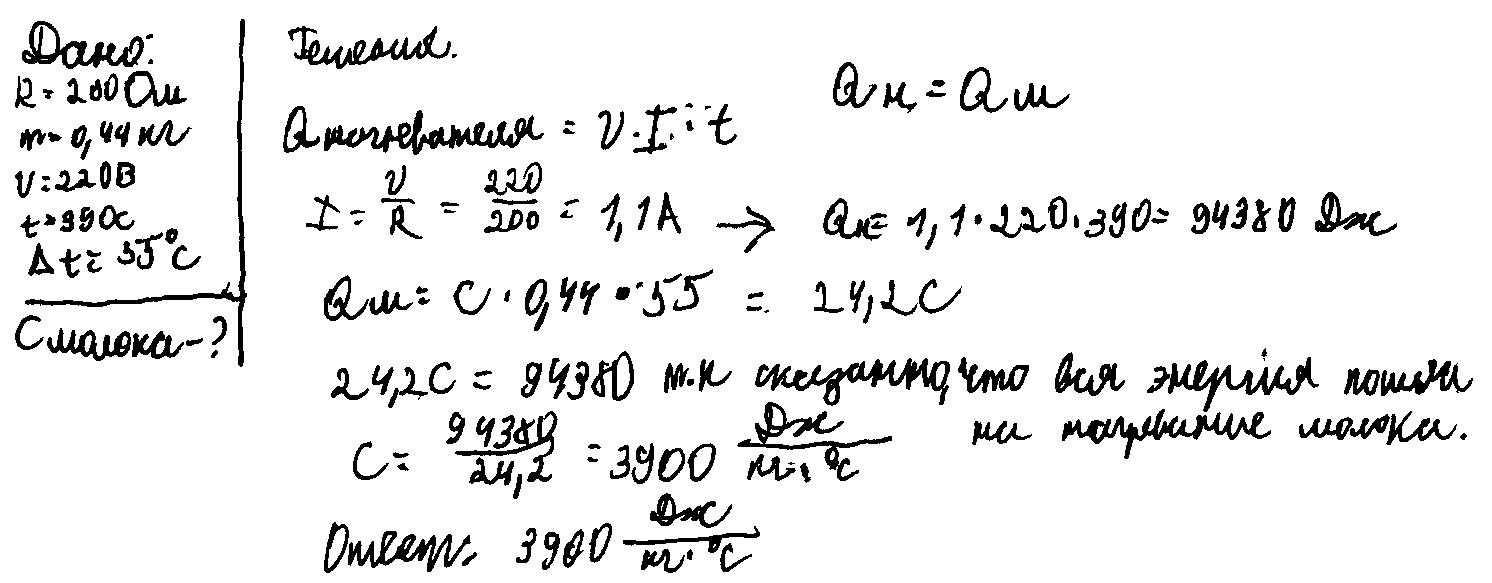 Дано:
R = 200 Ом
m = 0,44 кг
U = 220 В
t = 390 с
Δt = 55°C
C молока - ?
Решения.
Qн = Qм
Q нагревателя = U·I·t
I = U/R = 220/200 = 1,1 А → Qн = 1,1·220·390 = 94380 Дж
Qм = C·0,44·55 = 24,2C
24,2C = 94380 т.к сказанно, что вся энергия пошла
на нагревание молока.
C = 94380/24,2 = 3900 Дж/кг·°C
Ответ: 3900 Дж/кг·°C